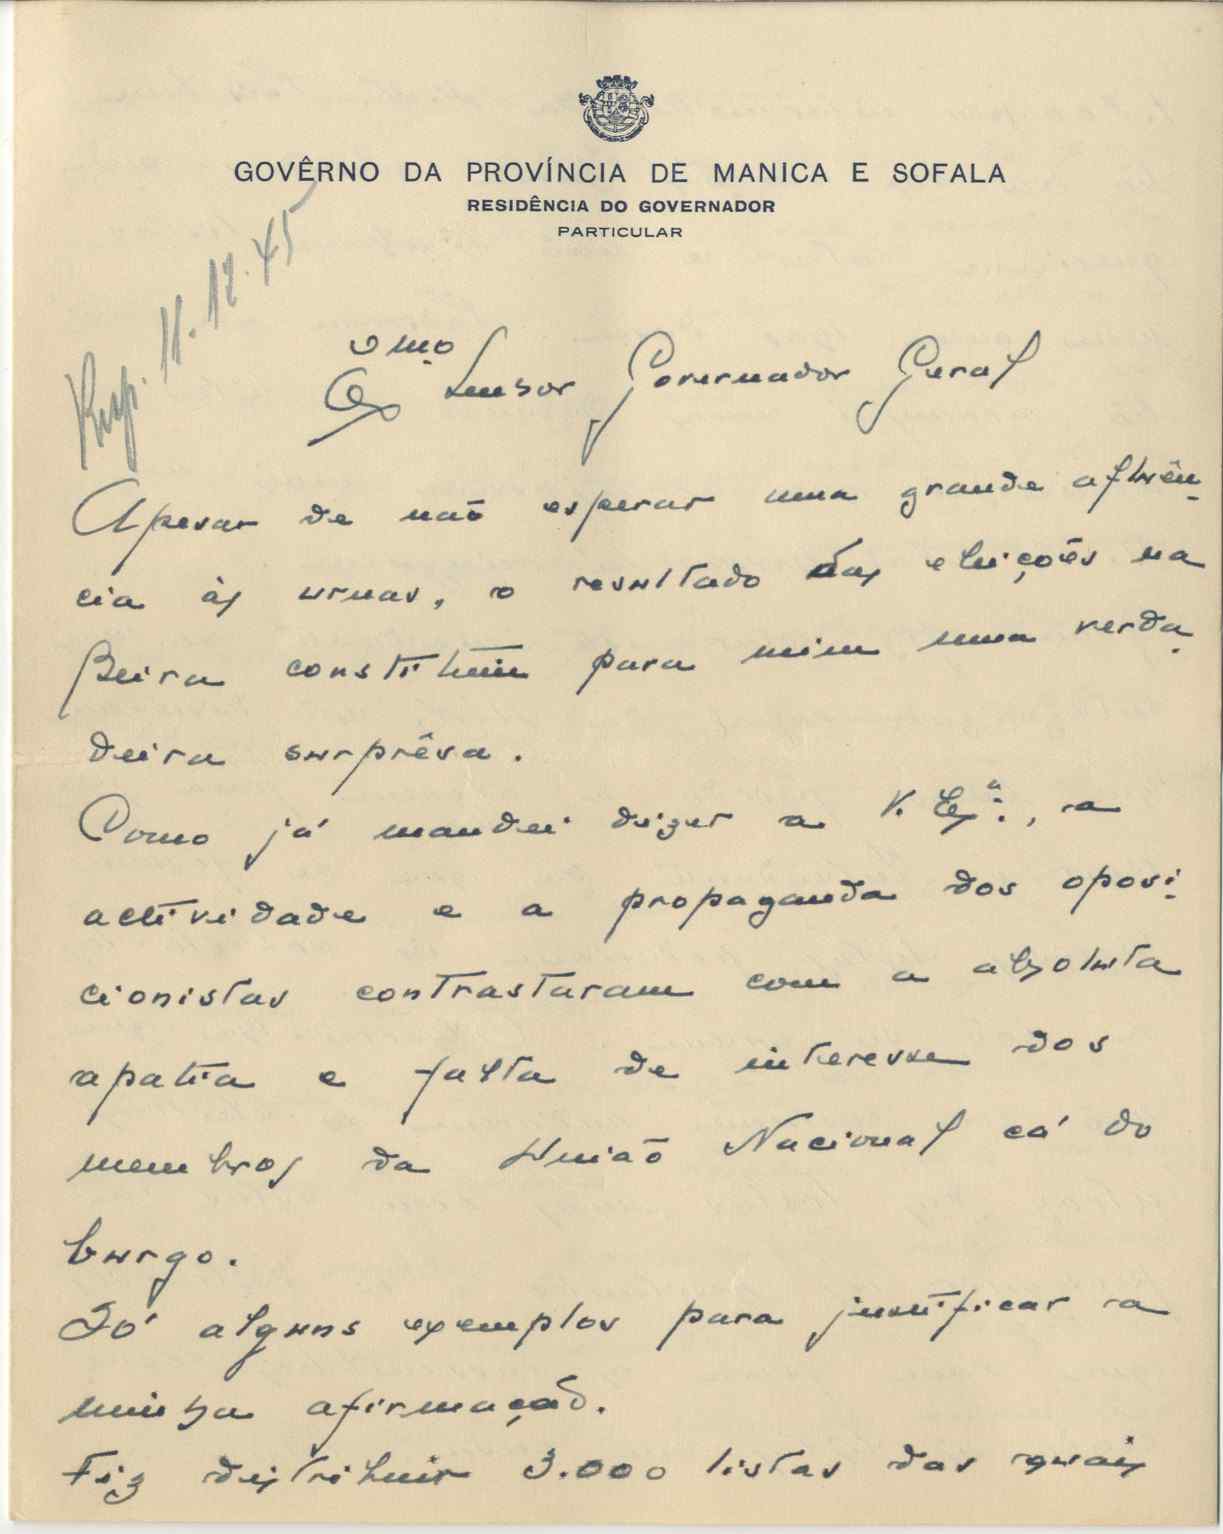 GOVÊRNO DA PROVÍNCIA DE MANICA E SOFALA
RESIDÊNCIA DO GOVERNADOR
PARTICULAR
Resp. 11.12.45
Exmo Senhor Governador Geral
Apesar de não esperar uma grande afluên-
cia às urnas, o resultado das eleições na
Beira constituiu para mim uma verda-
deira surprêsa.
Como já mandei dizer a V. Exª., a
actividade e a propaganda dos oposi-
cionistas contrastaram com a absoluta
apatia e falta de interesse dos
membros da União Nacional cá do
burgo.
Só alguns exemplos para justificar a
minha afirmação.
Fiz distribuir 3.000 listas das quais